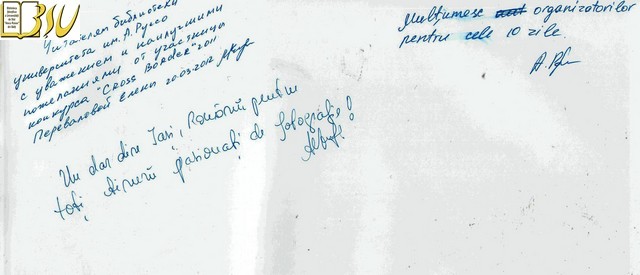 BSU
Читателям библиотеки
университета им. А. Руссо
с уважением и наилучшими
пожеланиями от участницы
конкурса "Cross Border" 2011
Переваловой Елены 20.03.2012
Mulțumesc organizatorilor
pentru cele 10 zile.
Un dar din Iași, România pentru
toți tinerii pasionați de fotografie!